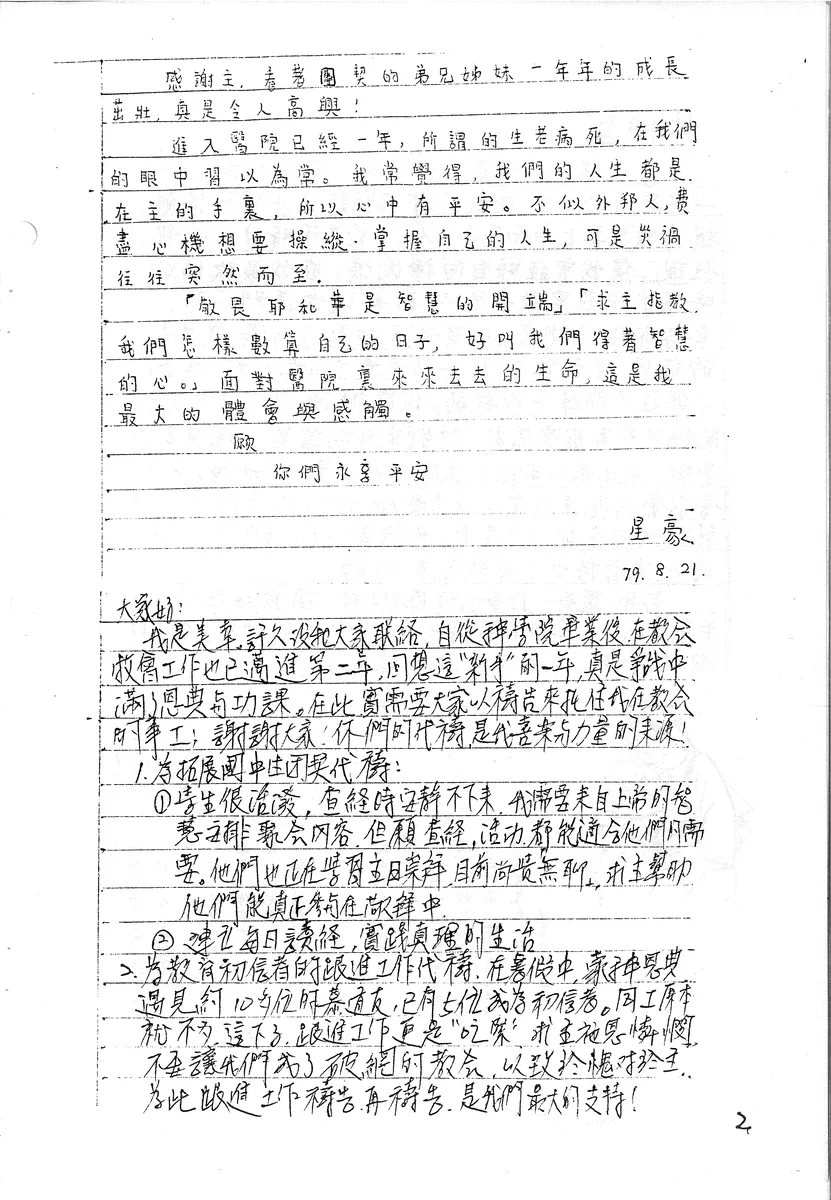 感謝主，看著團契的弟兄姊妹一年年的成長
茁壯，真是令人高興！
進入醫院已經一年，所謂的生老病死，在我們
的眼中習以為常。我常覺得，我們的人生都是
在主的手裏，所以心中有平安。不似外邦人，費
盡心機想要操縱．掌握自己的人生，可是災禍
往往突然而至．
「敬畏耶和華是智慧的開端」「求主指教
我們怎樣數算自己的日子，好叫我們得著智慧
的心。」面對醫院裏來來去去的生命，這是我
最大的體會與感觸。
願
你們永享平安
星豪
79.8.21.
大家好：
我是美，許久沒和大家联絡，自從神學院畢業後，在教会
牧會工作也已邁進第二年，回想這"新手"的一年，真是爭战中
滿了恩典与功課。在此實需要大家以禱告來托住我在教会
的事工；謝謝大家！你們的代禱，是我喜樂与力量的來源！
1. 為拓展國中生团契代禱：
①學生很活潑，查經時安靜不下來，我需要來自上帝的智
慧安排聚会內容．但願查經，活动，都能適合他們所需
要。他們也正在學習主日崇拜，目前尚覺"無聊"，求主幫助
他們能真正參与在敬拜中．
② 建立每日讀經，實踐真理的生活
2. 為教育初信者的跟進工作代禱．在暑假中，蒙神恩典
遇見約10多位的慕道友，已有5位成為初信者。同工原本
就不多，這下子，跟進工作更是"吃緊"求主施恩憐憫，
不要讓我們成了破網的教会，以致於愧对於主．
為此跟進工作禱告，再禱告．是我們最大的支持！
2